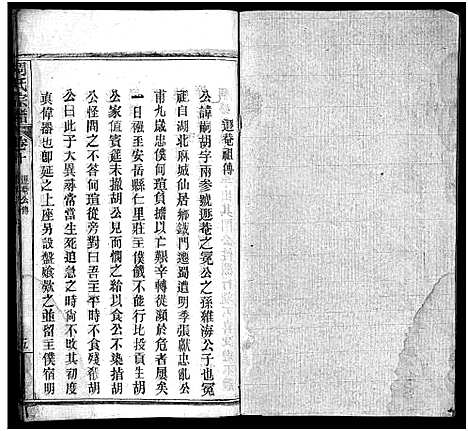 遯菴祖傳
公諱嗣胡字兩參號遯菴之冕公之孫雅海公子也冕
祖自湖北麻城仙居鄉鐵門遷蜀遭明季張獻忠亂公
甫九歲忠僕何瑄負擔以亡艱辛轉徙瀕於危者屢矣
一日極至安岳縣仁里莊主僕餓不能行比投貢生胡
公家值賓筵未撤胡公見而憫之給以食公不染指胡
公怪問之不答何瑄從旁對曰吾主平時不食殘穀胡
公曰此子大異尋常當生死迫急之時尚不敗其初
真偉器也即延之上座另設盤飧欵之並留主僕宿明
周氏宗譜
卷十
遯菴公傳
五